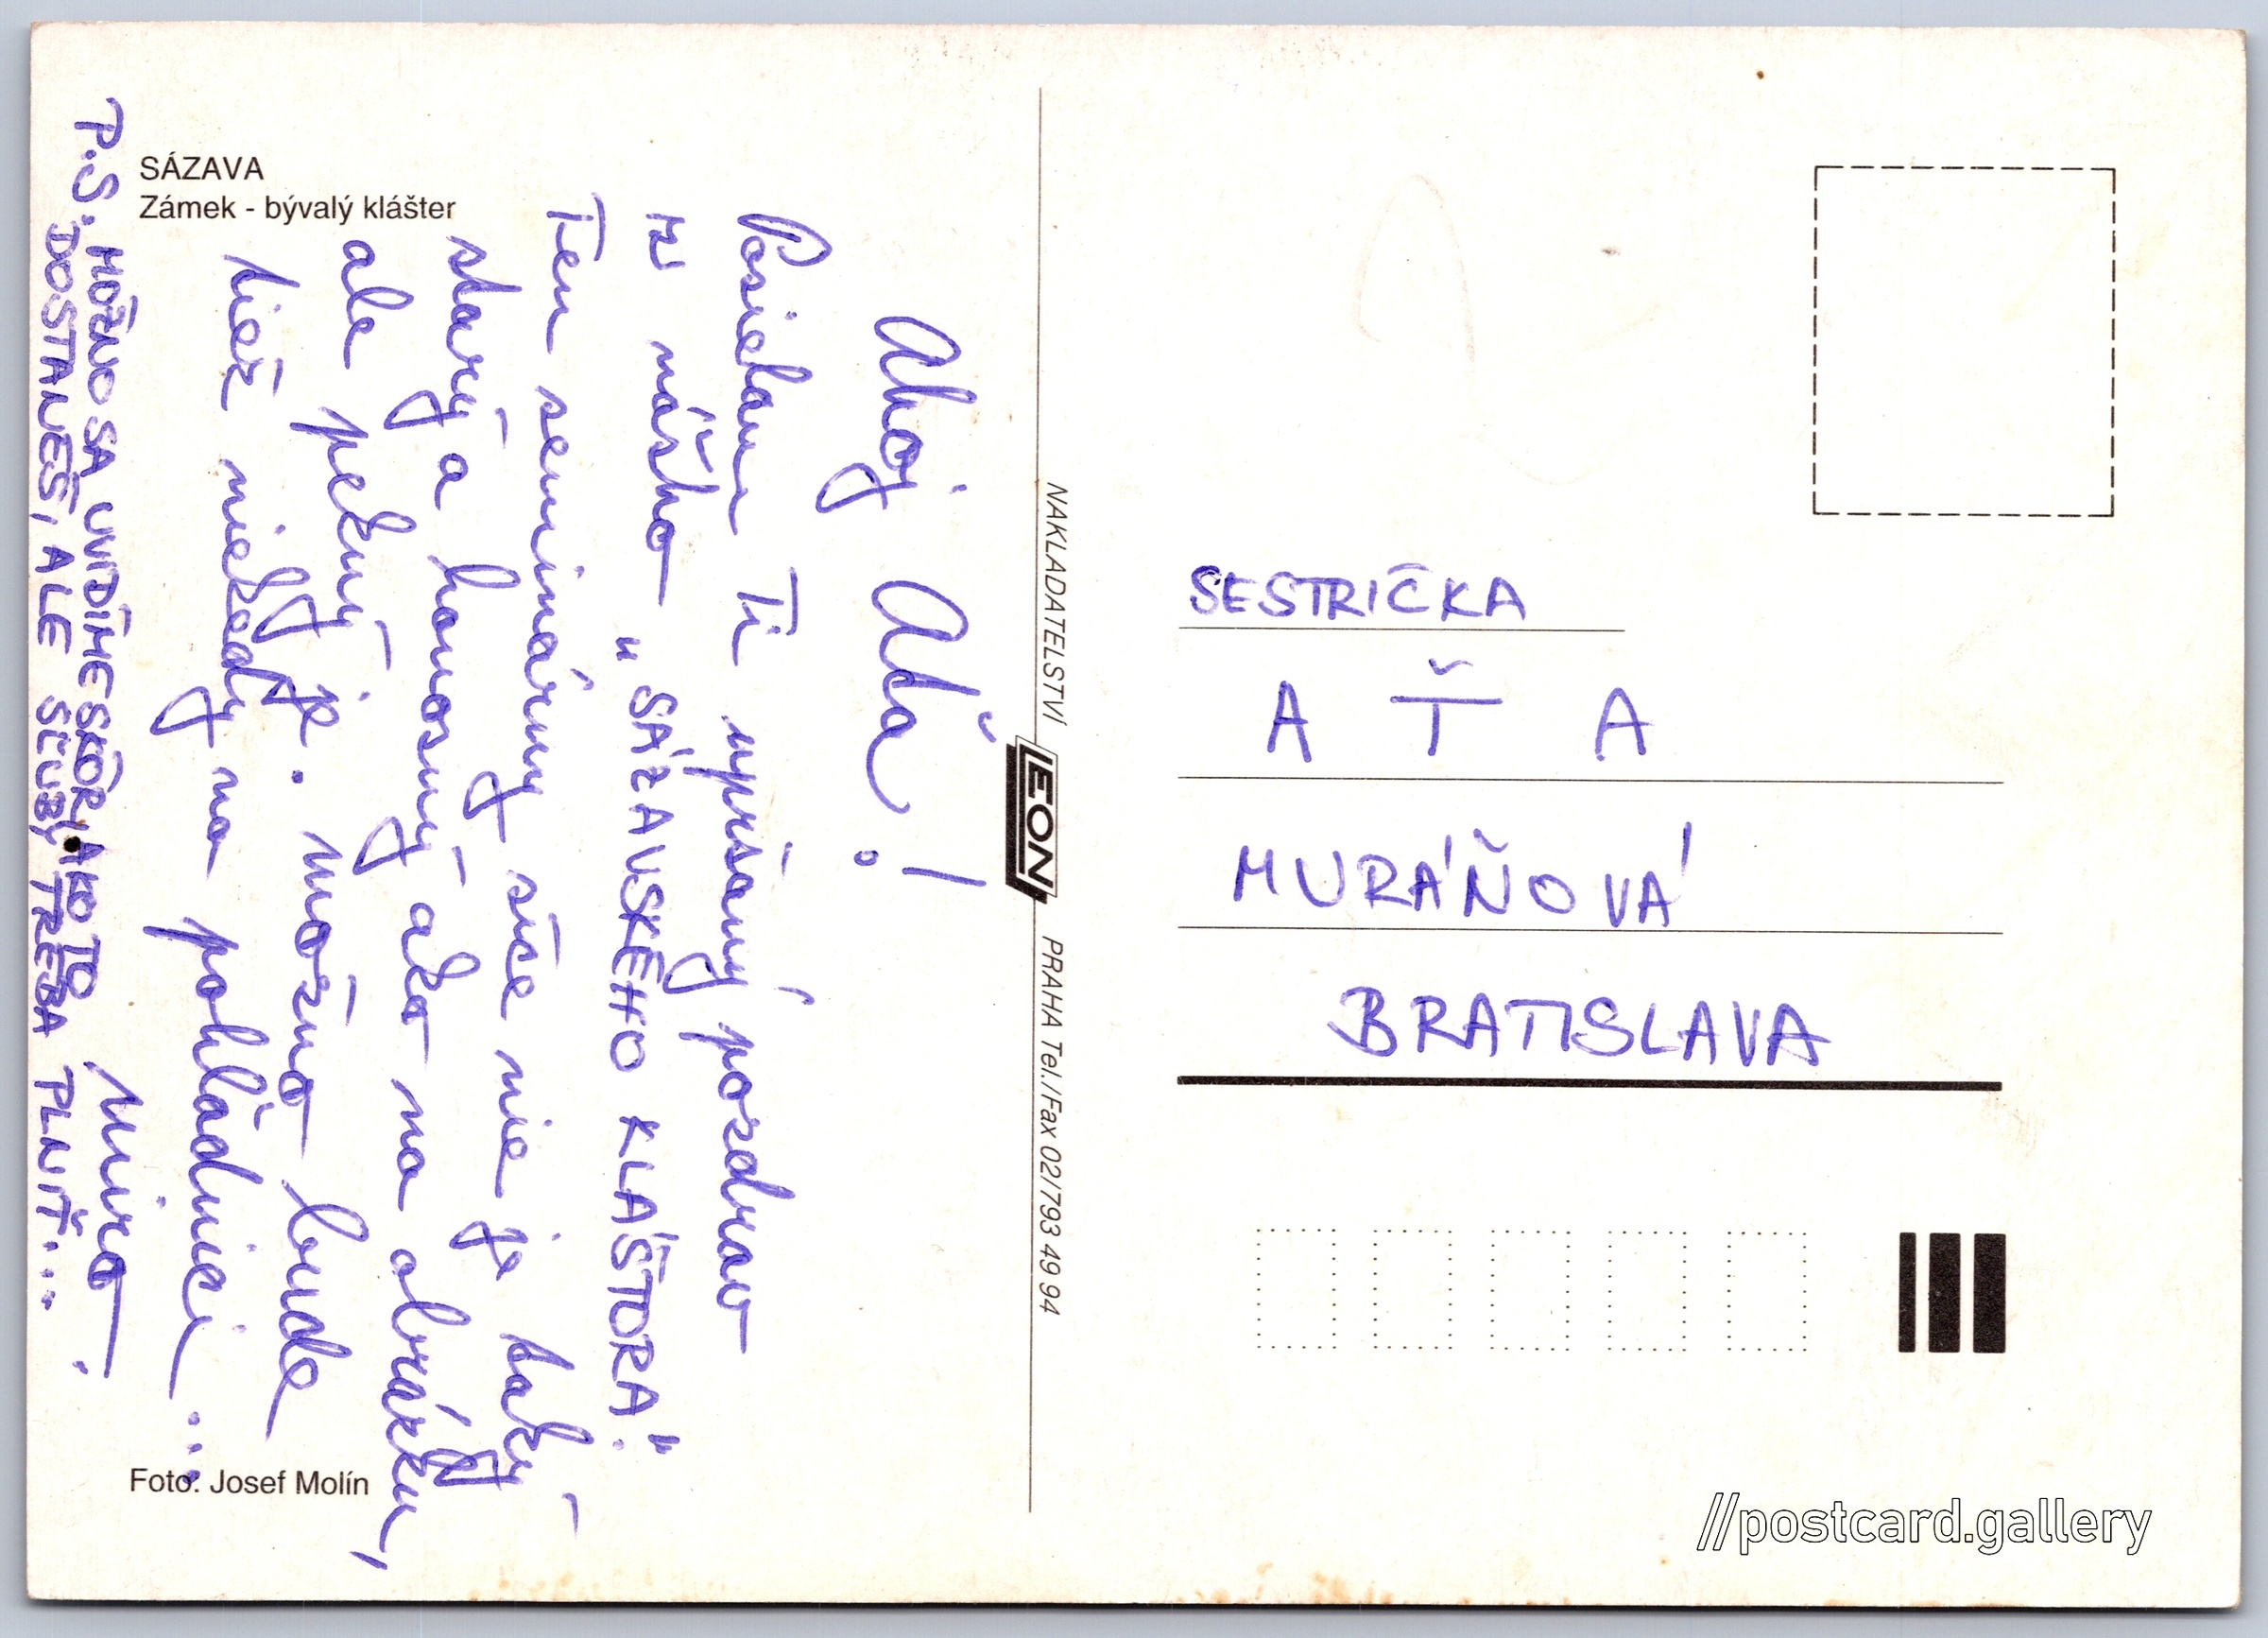 SÁZAVA
Zámek - bývalý klášter
Ahoj Aťa!
Posielam Ti upršaný pozdrav
zo nášho „SÁZAVSKÉHO KLÁŠTORA."
Ten seminárny síce nie je taký
starý a honosný ako na obrázku,
ale pekný je. Možno bude
tiež niekedy na pohľadnici...
Miro.
P.S. MOŽNO SA UVIDÍME SKÔR, AKO TO
DOSTANEŠ, ALE SĽUBY TREBA PLNIŤ...
Foto: Josef Molín
NAKLADATELSTVÍ LEON PRAHA Tel./Fax 02/793 49 94
SESTRIČKA
A Ť A
MURÁŇOVÁ
BRATISLAVA
//postcard.gallery